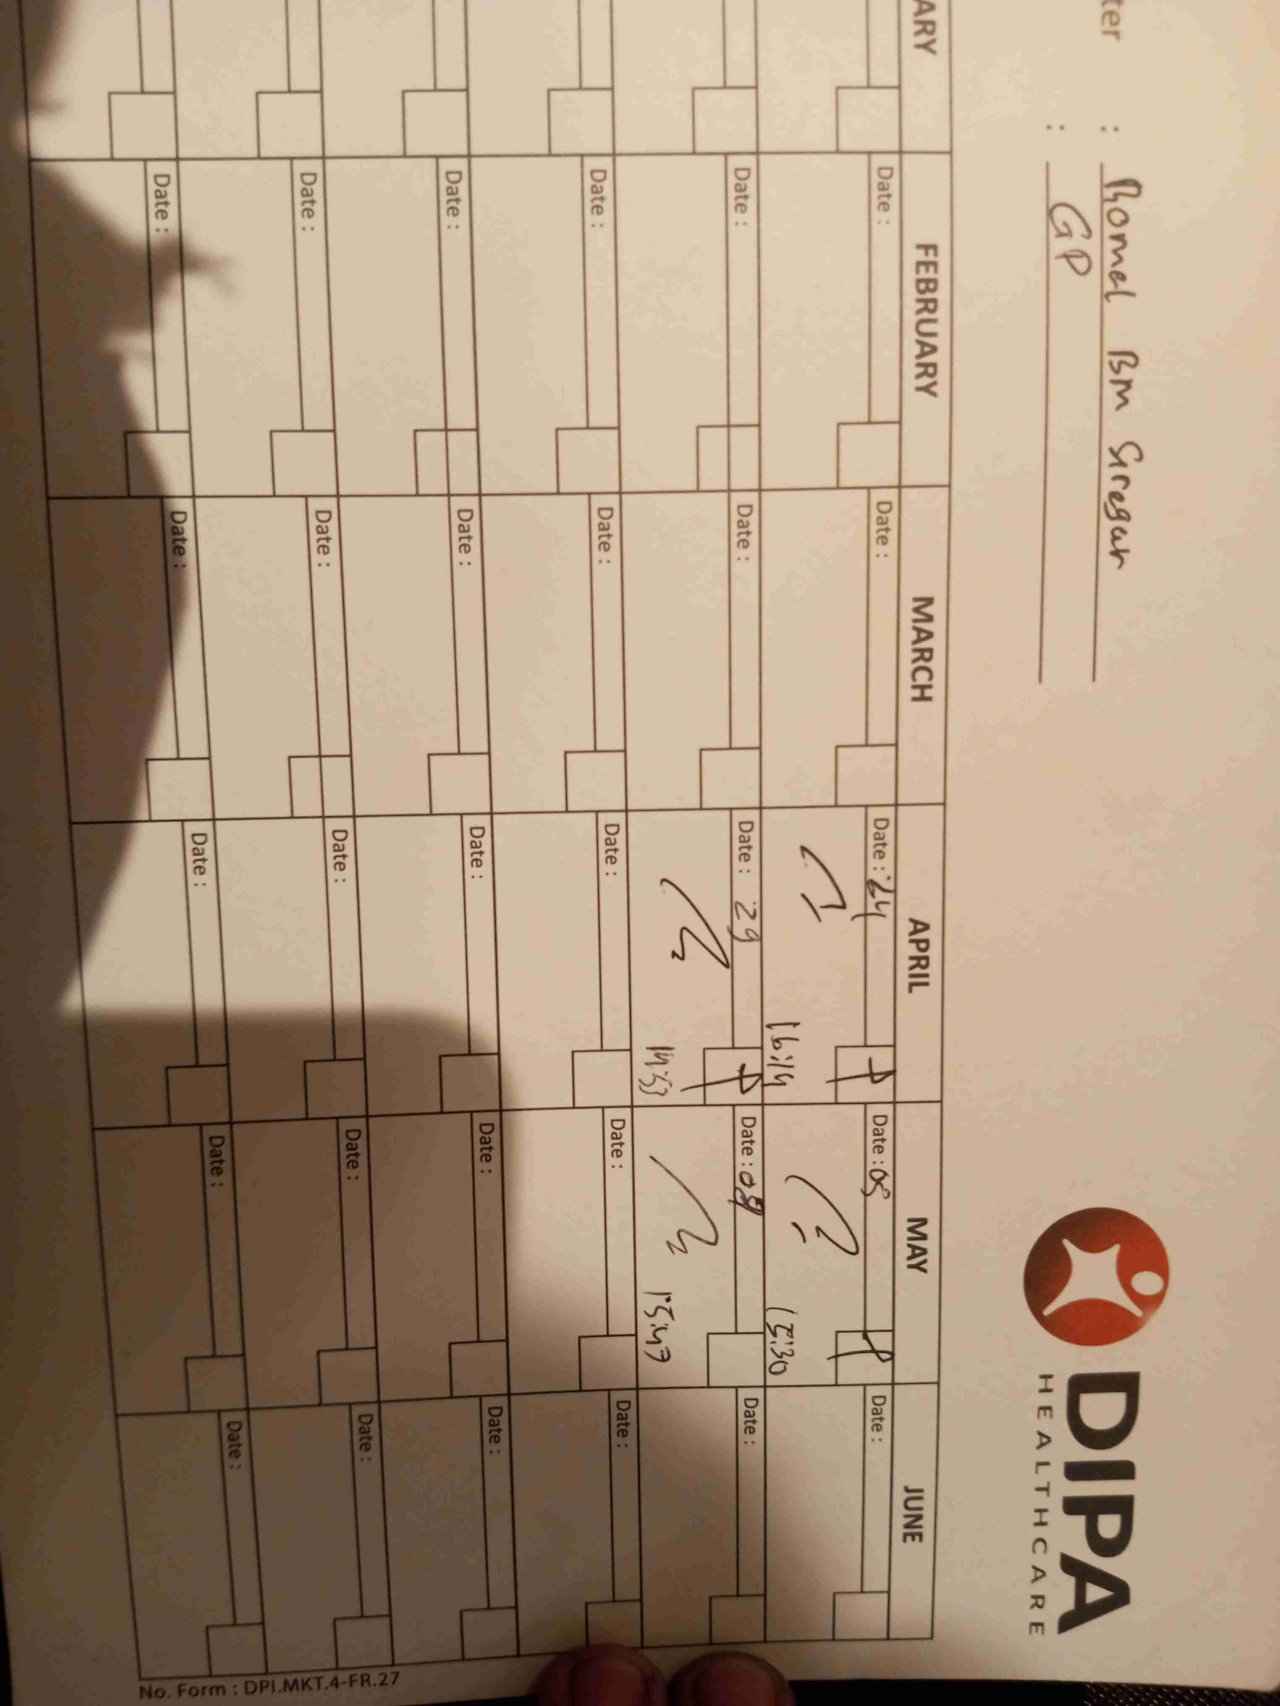 ter : Romel BM Siregar
: GP
DIPA
HEALTHCARE
ARY FEBRUARY MARCH APRIL MAY JUNE
Date : Date : Date : 24 Date : 05 Date :
16:14 15:30
Date : Date : Date : 29 Date : 08 Date :
14:53 15:47
Date : Date : Date : Date : Date :
Date : Date : Date : Date : Date :
Date : Date : Date : Date : Date :
Date : Date : Date : Date : Date :
No. Form : DPI.MKT.4-FR.27